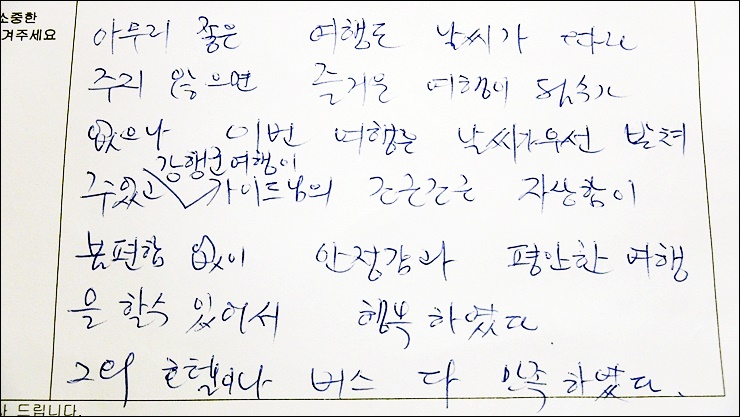 소중한
겨주세요
아무리 좋은 여행도 날씨가 따라
주지 않으면 즐거운 여행이 될수가
없으나 이번 여행은 날씨가 우선 받쳐
주었고 강행군여행이 가이드님의 자상함이
불편함 없이 안정감과 평안한 여행
을 할수 있어서 행복 하였다.
그외 호텔이나 버스 다 만족 하였다.
사 드립니다.